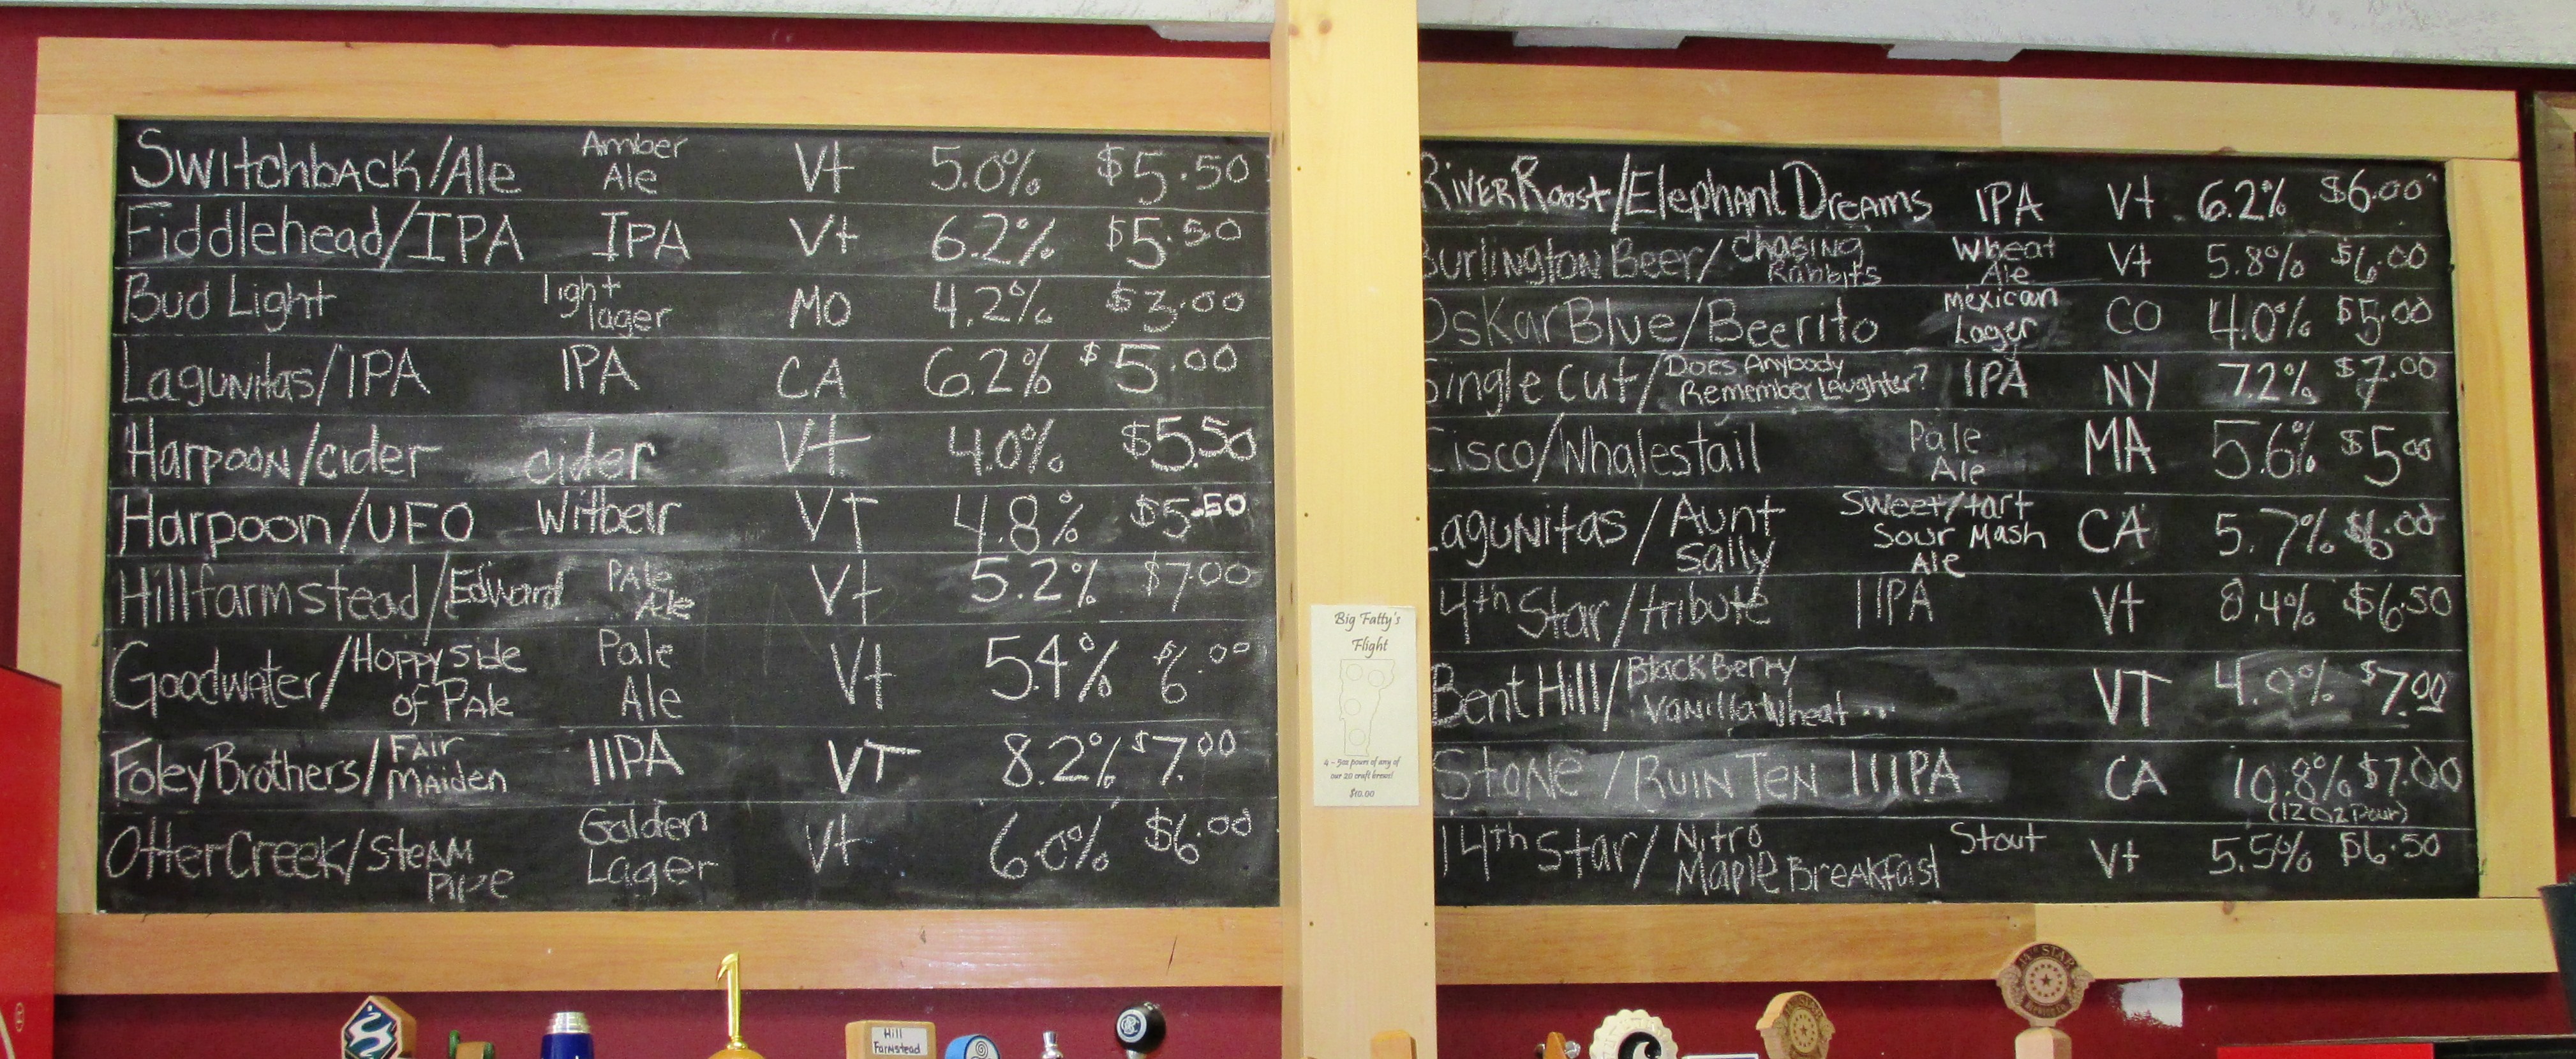 Switchback/Ale Amber Ale Vt 5.0% $5.50
Fiddlehead/IPA IPA Vt 6.2% $5.50
Bud Light light lager MO 4.2% $3.00
Lagunitas/IPA IPA CA 6.2% $5.00
Harpoon/cider cider Vt 4.0% $5.50
Harpoon/UFO Witbeir VT 4.8% $5.50
Hillfarmstead/Edward Pale Ale Vt 5.2% $7.00
Goodwater/Hoppy side of Pale Pale Ale Vt 5.4% $6.00
Foley Brothers/Fair Maiden IIPA VT 8.2% $7.00
Otter Creek/Steam Pipe Golden Lager Vt 6.0% $6.00
Big Fatty's
Flight
4 - 5oz pours of any of
our 20 craft brews!
$10.00
River Roost/Elephant Dreams IPA Vt 6.2% $6.00
Burlington Beer/Chasing Rabbits Wheat Ale Vt 5.8% $6.00
Oskar Blue/Beerito Mexican Lager CO 4.0% $5.00
Single Cut/Does Anybody Remember Laughter? IPA NY 7.2% $7.00
Cisco/Whalestail Pale Ale MA 5.6% $5.00
Lagunitas/Aunt Sally Sweet/tart Sour Mash Ale CA 5.7% $6.00
14th Star/tribute IIPA Vt 8.4% $6.50
Bent Hill/Black Berry Vanilla Wheat ... VT 4.0% $7.00
Stone/Ruin Ten IIIPA CA 10.8% $7.00
(12 Oz Pour)
14th Star/Nitro Maple Breakfast Stout Vt 5.5% $6.50
Hill
Farmstead
14TH STAR